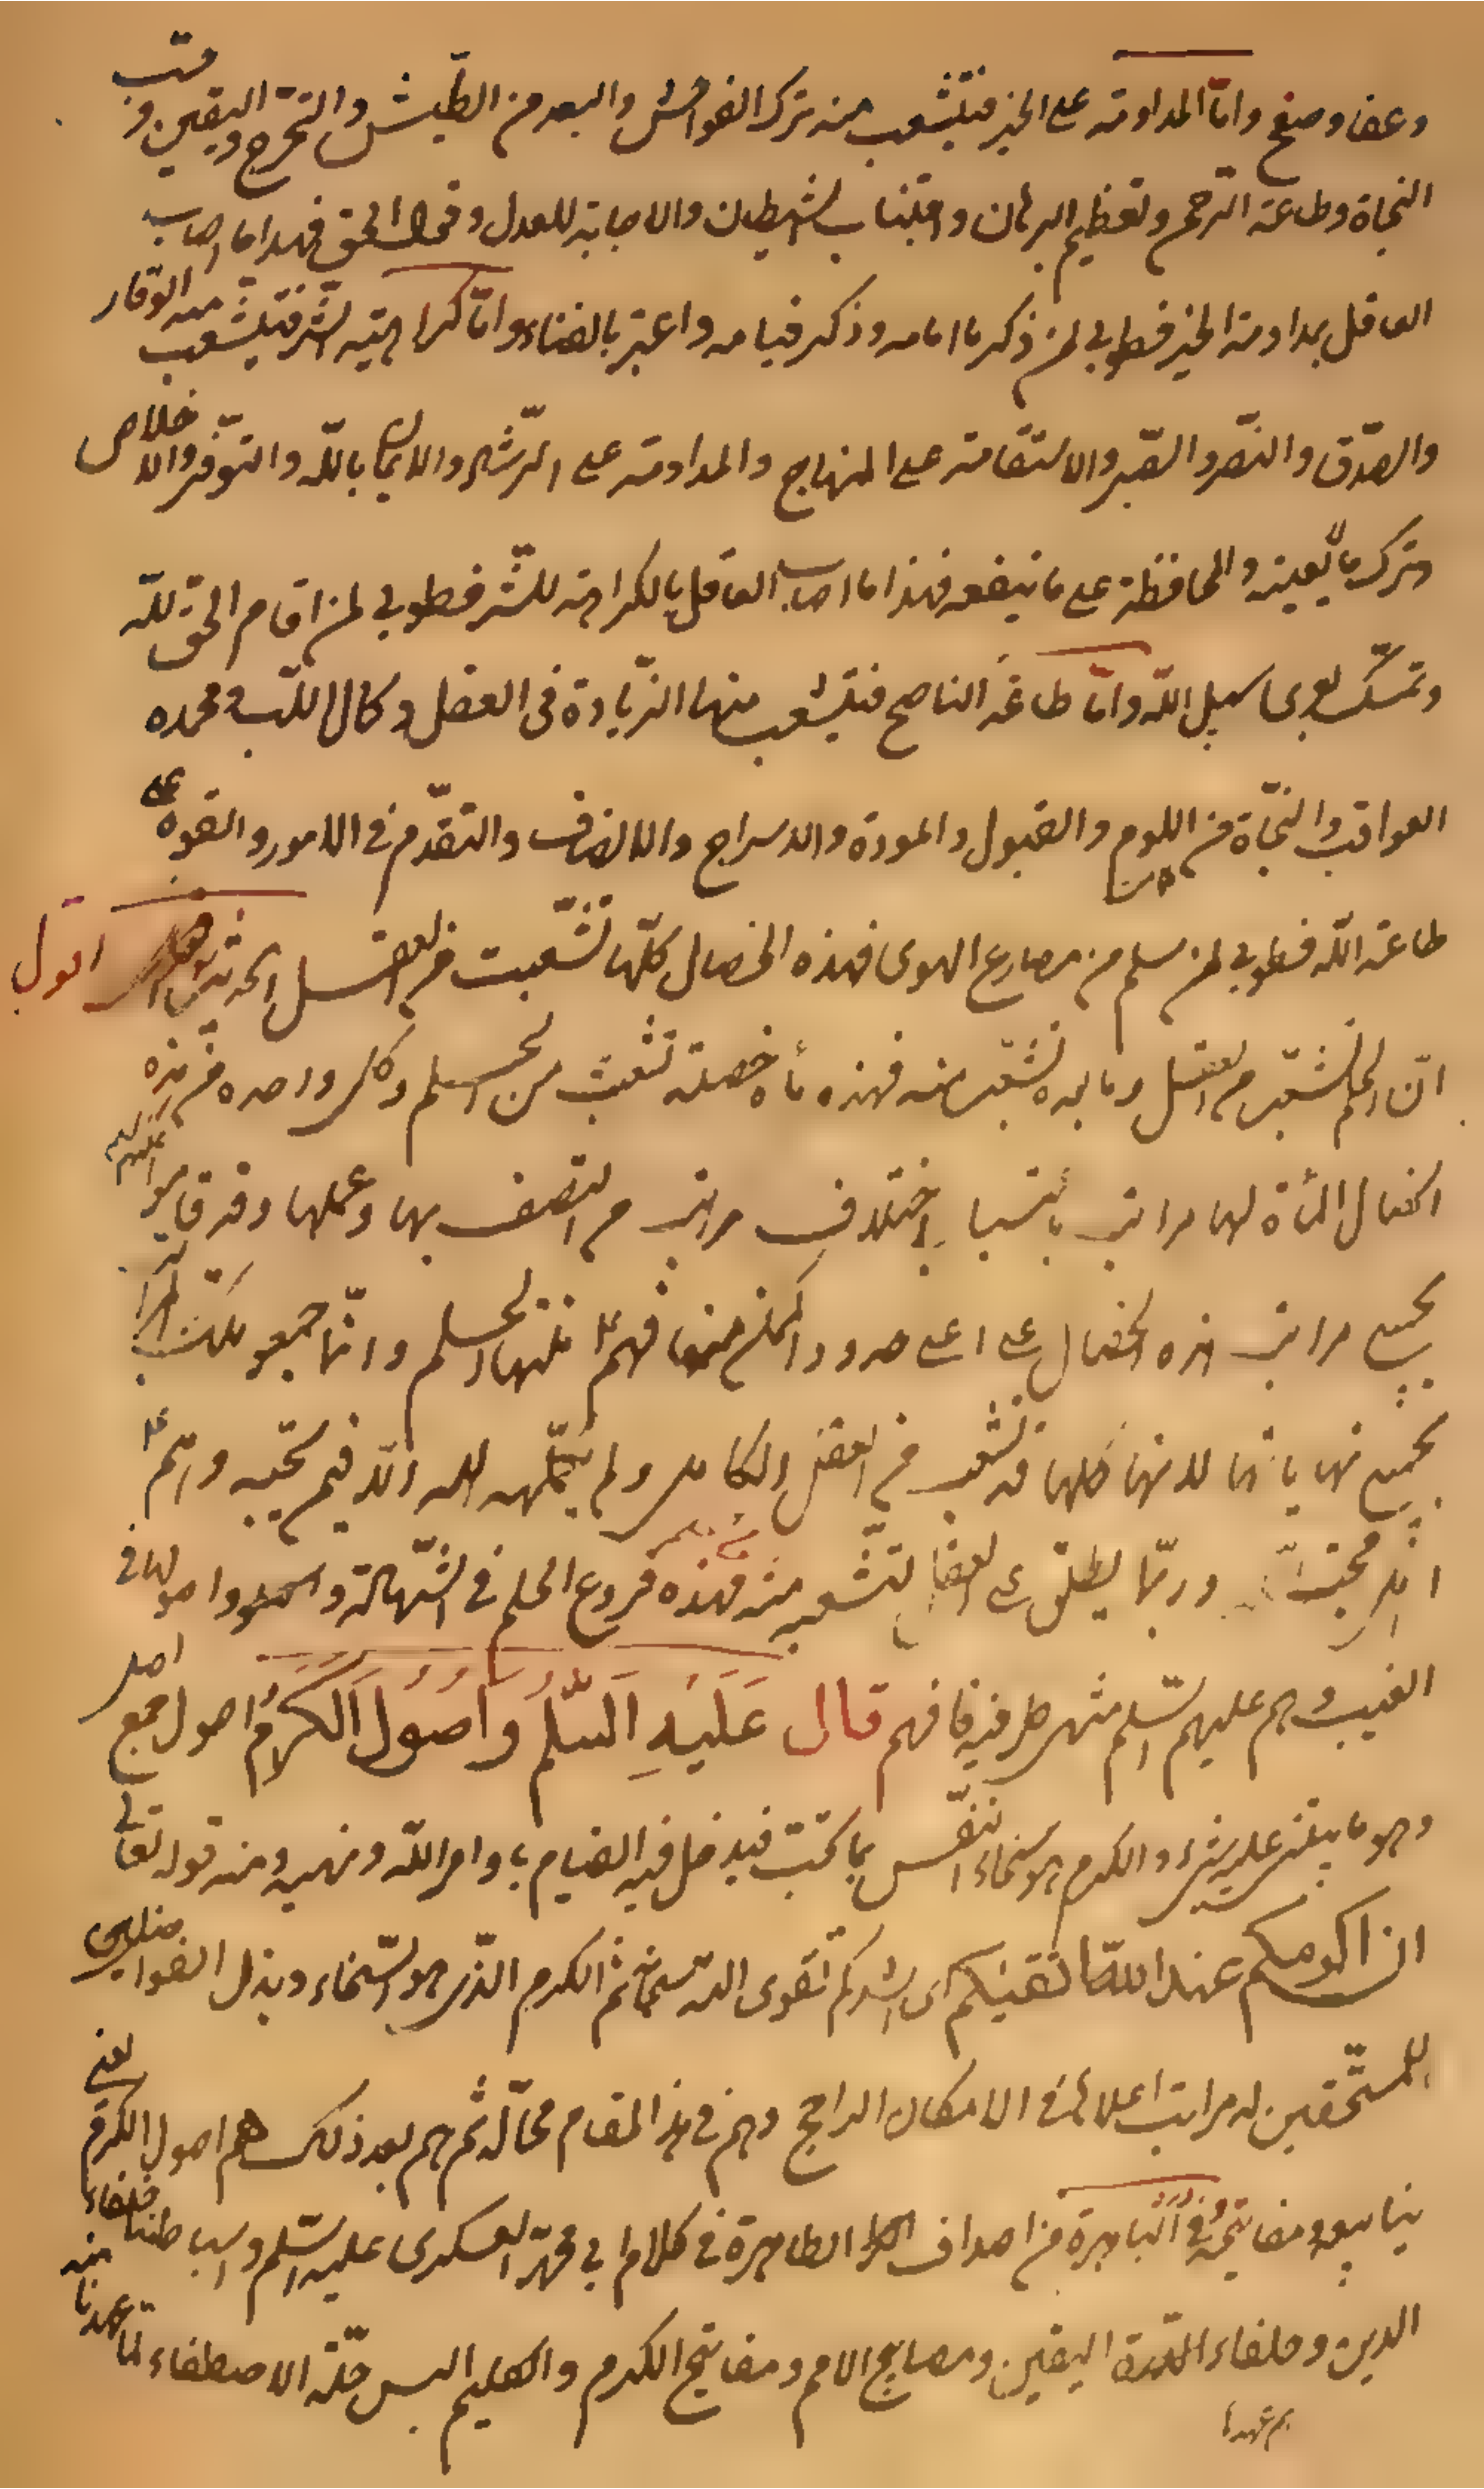 وعفا وصفح واما المداومة على الخير فيتشعب منه ترك الفواحش والبعد من الطيش والتحرج واليقين وحب
النجاة وطاعة الرحمن وتعظيم البرهان واجتناب الشيطان والاجابة للعدل وقول الحق فهذا ما اصاب
العاقل بمداومة الخير فطوبى لمن ذكر ما امامه وذكر قيامه واعتبر بالفناء واما كراهية الشر فيتشعب منه الوقار
والصدق والنصر والصبر والاستقامة على المنهاج والمداومة على الرشاد والايمان بالله والتوفر والاخلاص
وترك ما لا يعينه والمحافظة على ما ينفعه فهذا ما اصاب العاقل بالكراهة للشر فطوبى لمن اقام الحق لله
وتمسك بعرى سبيل الله واما طاعة الناصح فيتشعب منها الزيادة فى العقل وكمال اللب ومحمدة
العواقب والنجاة من اللوم والقبول والمودة والاسراج والانصاف والتقدم فى الامور والقوة على
طاعة الله فطوبى لمن سلم من مصارع الهوى فهذه الخصال كلها تتشعب من العقل الحديث اقول
ان الحلم تشعب من العقل وما بعده تشعب منه فهذه مأة خصلة تشعبت من الحلم وكل واحده من هذه
الخصال المأة لها مراتب باختلاف مراتب من اتصف بها وعملها وقد قاموا عليهم السلام
بجميع مراتب هذه الخصال على اعلى حدود الممكن منها فهم ع منتهى الحلم وانما جمعوا تلك المراتب
بجميع نهاياتها لانها كلها قد تشعب من العقل الكامل ولم يكمله الله الا فيمن يحبه وانهم ع
وربما يطلق على العقل لتشعبه منه فهذه فروع الحلم فى الشهادة واصولها فى
الغيب وهم عليهم السلم منتهى طرفيه فافهم قال عَلَيهِ السَّلمُ وَاُصُولَ الكَرَمِ اصول جمع اصل
وهو ما يبتنى عليه شىء والكرم هو سخاء النفس بما تحب فيدخل فيه القيام باوامر الله ونهيه ومنه قوله تعالى
ان اكرمكم عند الله اتقيكم اى اشدكم تقوى الله سبحانه ثم الكرم الذى هو السخاء وبذل الفواضل
للمستحقين له مراتب اعلاها فى الامكان الراجح وهم فى هذا المقام محاله ثم هم بعد ذلك هم اصول الكرم يعنى
ينابيعه ومفاتيحه فى الباهرة من اصداف الطاهرة فى كلام ابى محمد العسكرى عليه السلم واسباطنا خلفاء
الدين وخلفاء اليقين ومصابيح الامم ومفاتيح الكرم والكليم البس حلة الاصطفاء لما عهدنا منه